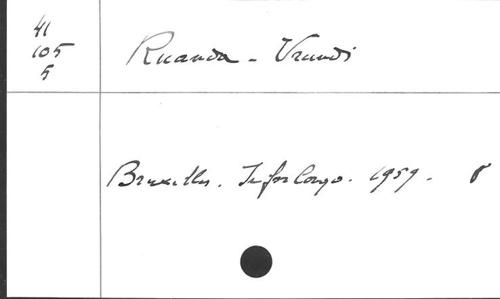 41
105
5
Ruanda - Urundi
Bruxelles. Inforcongo. 1959. 8